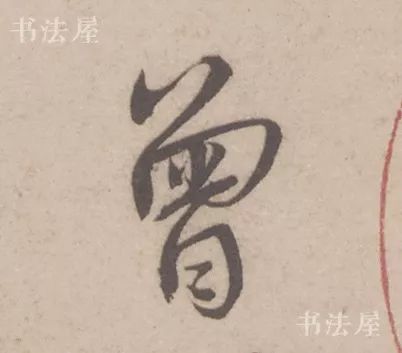 书法屋
曾
书法屋